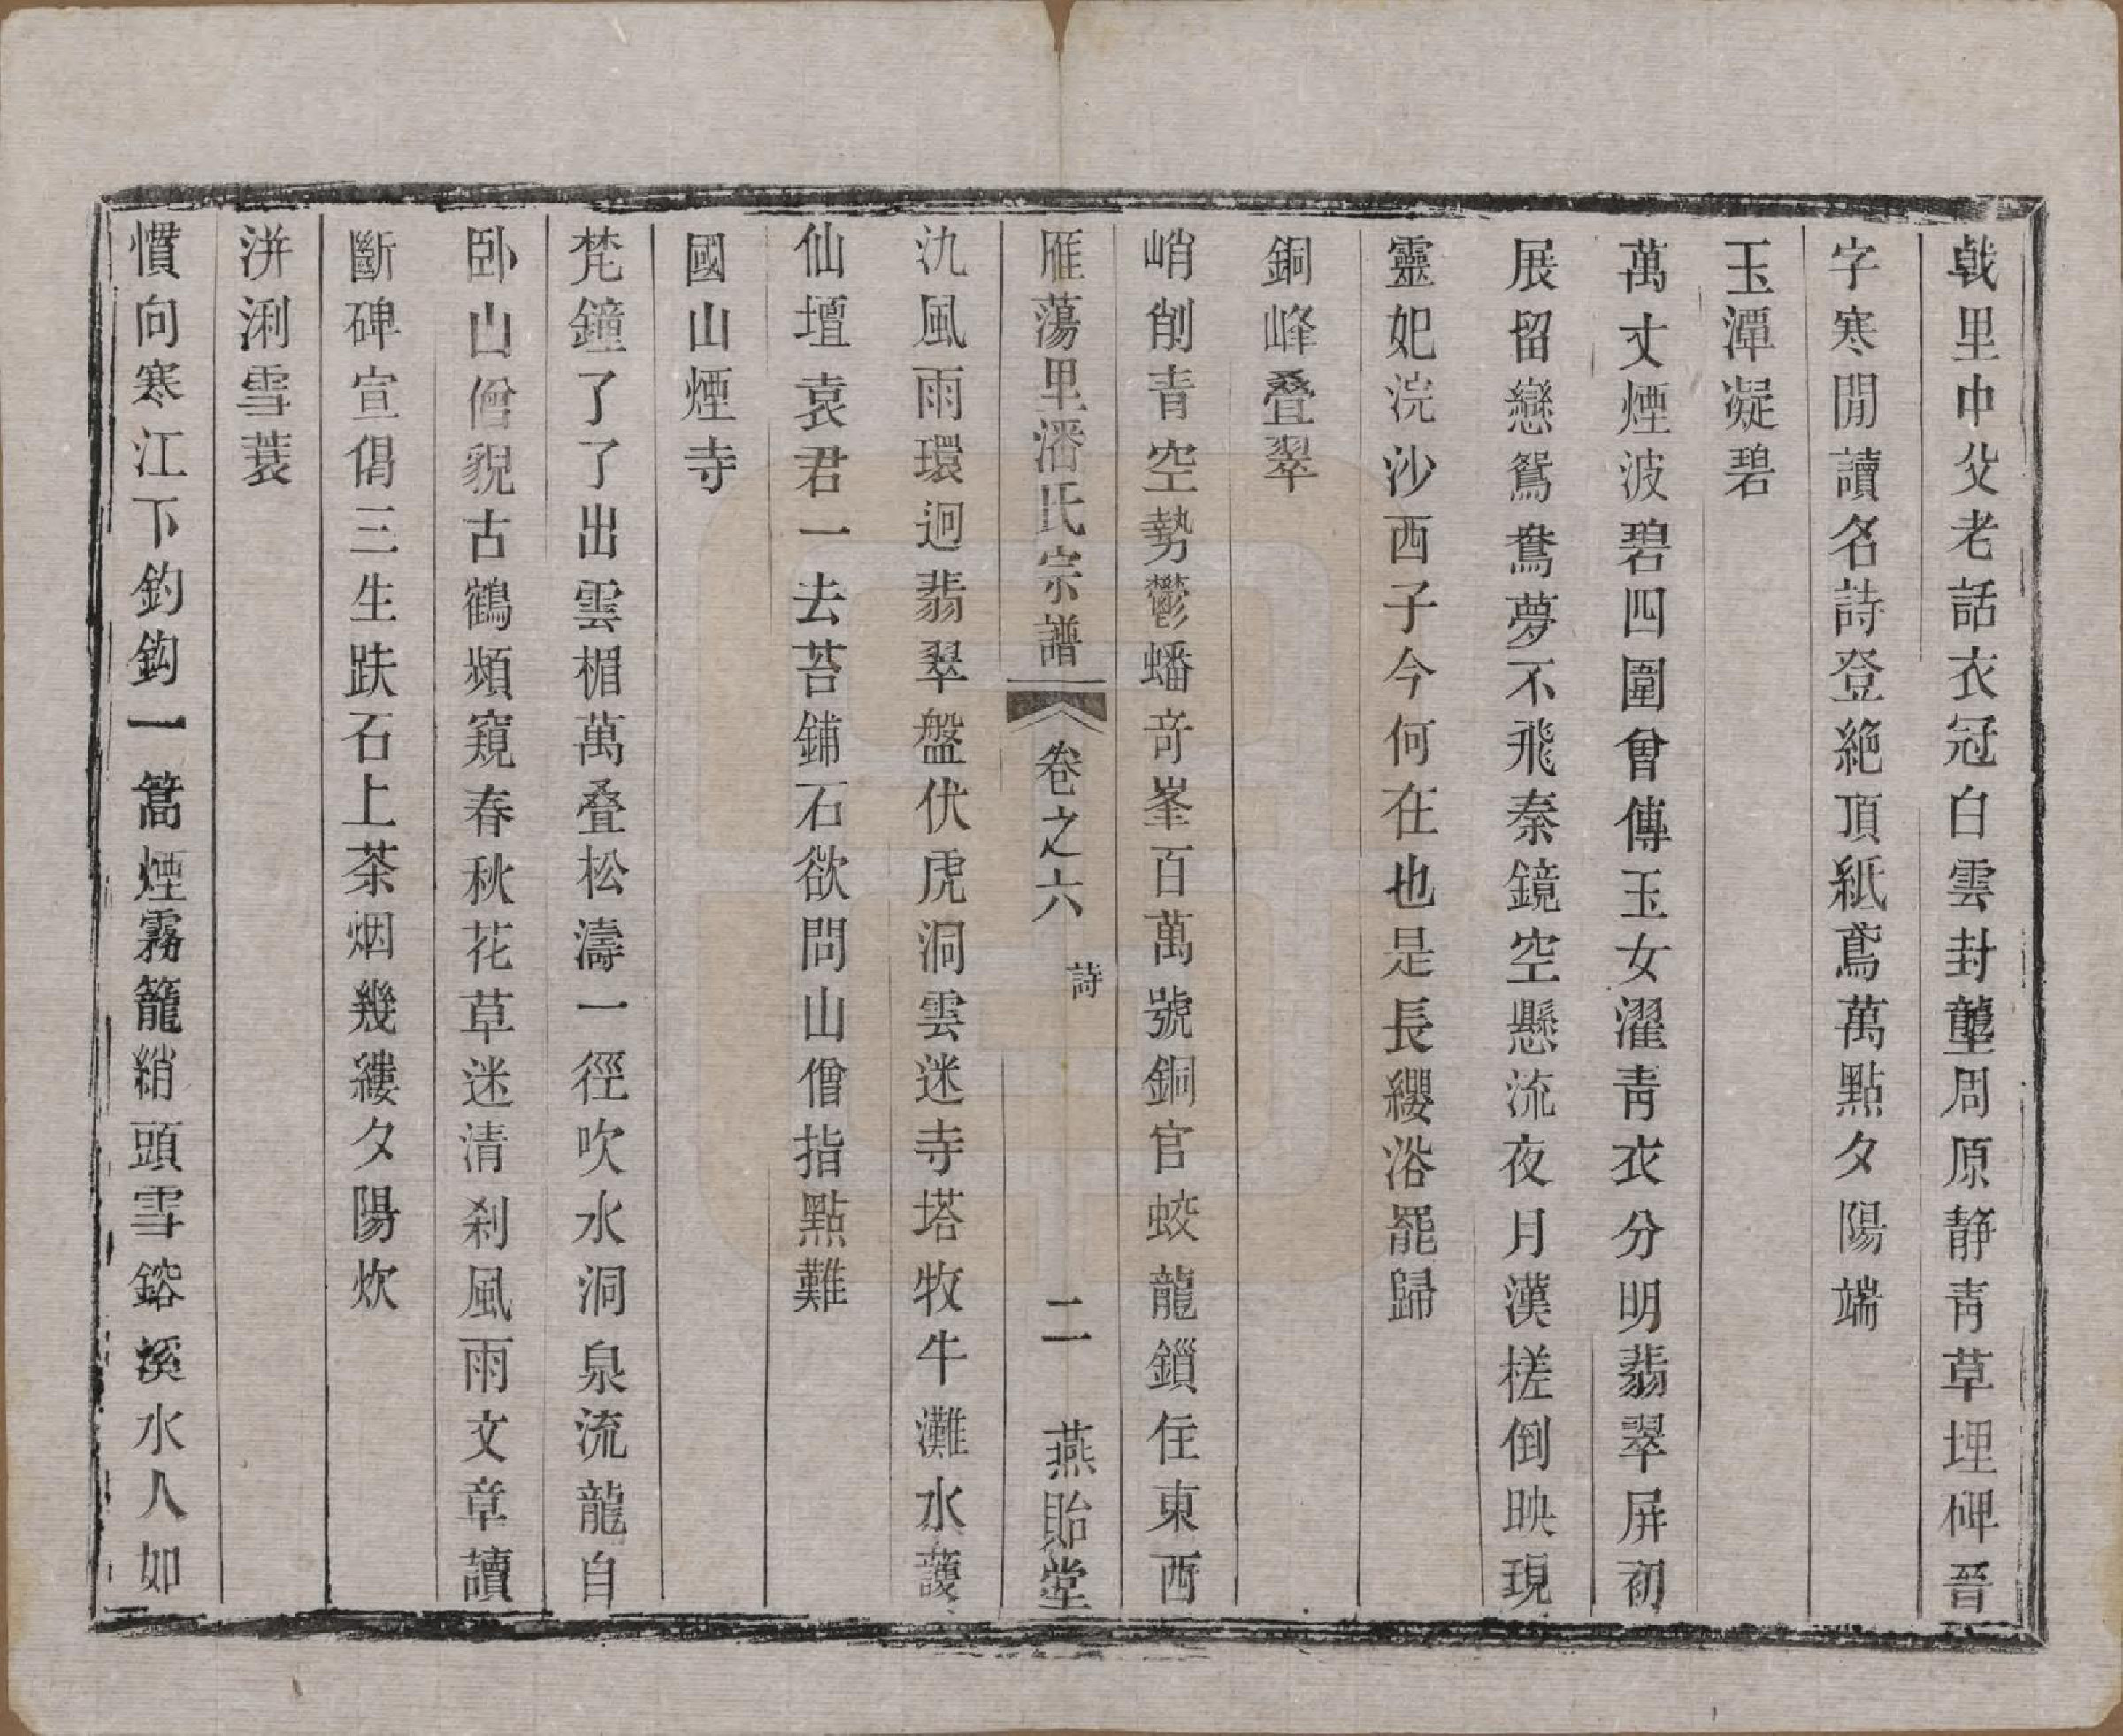 戟里中父老話衣冠白雲封壟周原静青草埋碑晉
字寒閒讀名詩登絶頂紙鳶萬點夕陽端
玉潭凝碧
萬丈煙波碧四圍曾傳玉女濯青衣分明翡翠屏初
展留戀鴛鴦夢不飛秦鏡空懸流夜月漢槎倒映現
靈妃浣沙西子今何在也是長纓浴罷歸
銅峰叠翠
峭削青空勢鬱蟠奇峯百萬號銅官蛟龍鎖住東西
雁蕩里潘氏宗譜 卷之六 詩 二 燕貽堂
氿風雨環迥翡翠盤伏虎洞雲迷寺塔牧牛灘水護
仙壇袁君一去苔鋪石欲問山僧指點難
國山煙寺
梵鐘了了出雲楣萬叠松濤一徑吹水洞泉流龍自
臥山僧貌古鶴頻窺春秋花草迷清刹風雨文章讀
斷碑宣倡三生趺石上茶烟幾縷夕陽炊
洴浰雪蓑
慣向寒江下釣鈎一篙煙霧籠綃頭雪鎔溪水人如